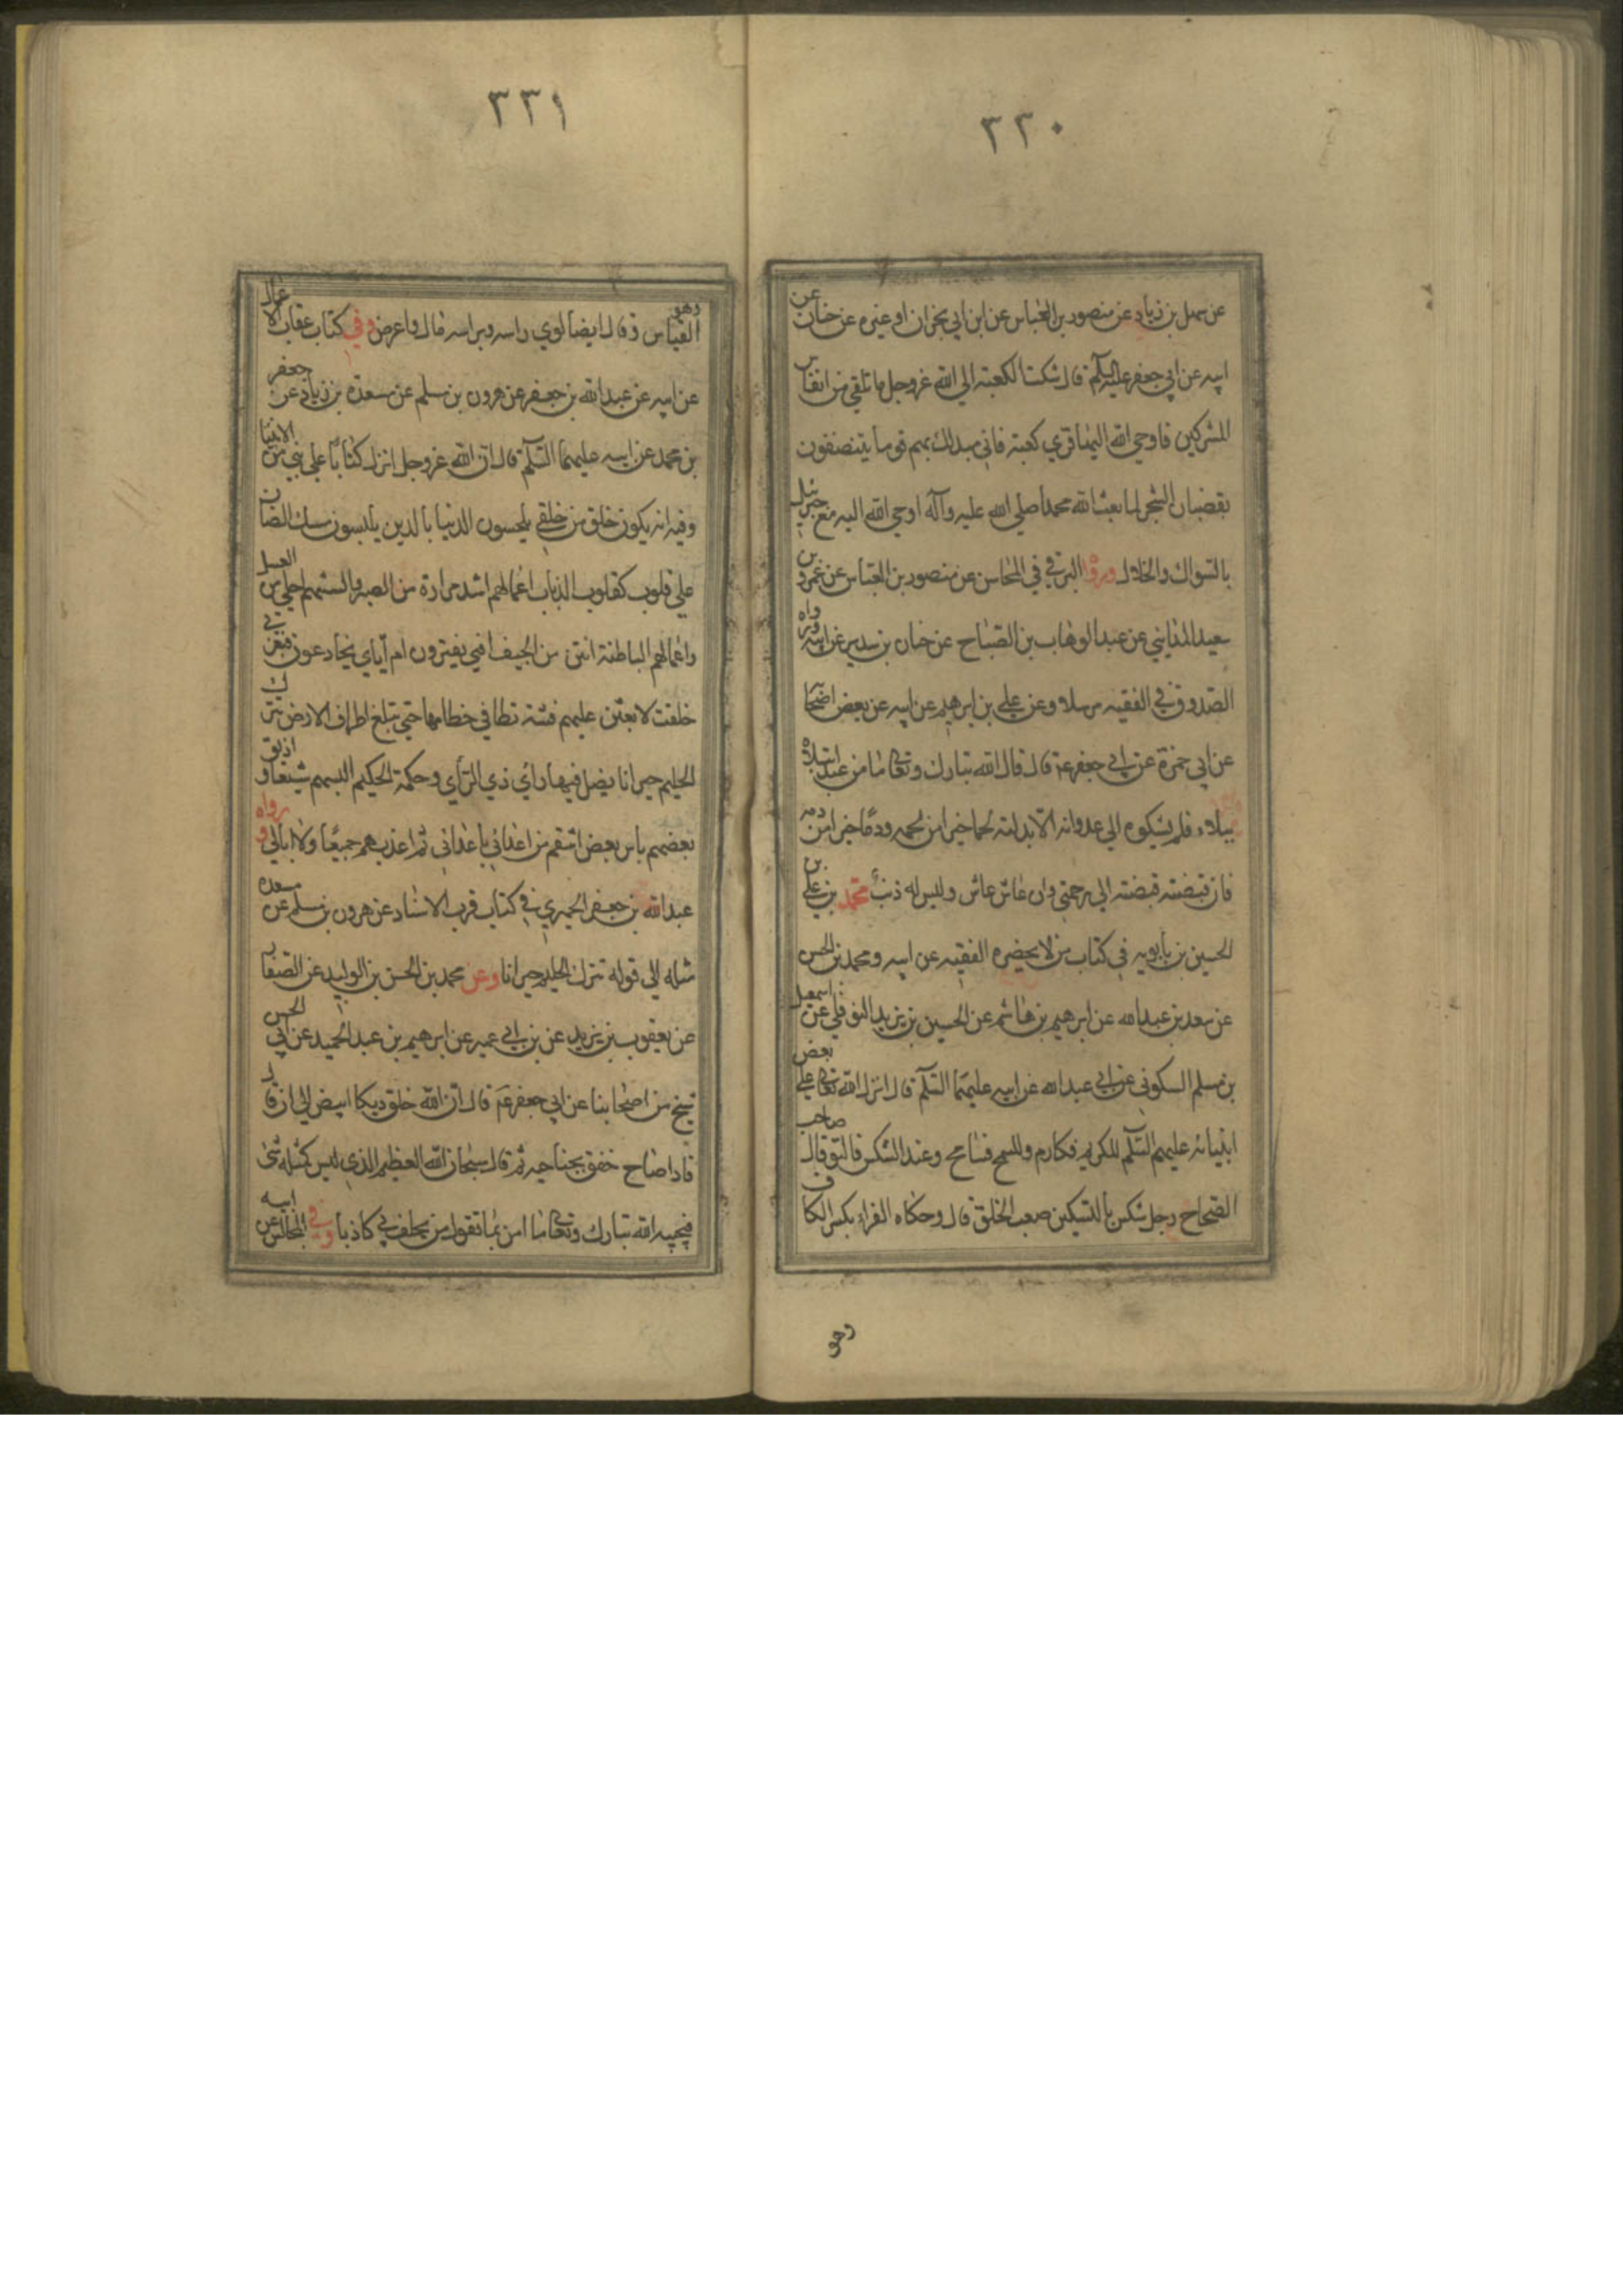 ٢٢٠
عن سهل بن زياد عن منصور بن العباس عن ابن ابي نجران او غيره عن حنان عن
ابيه عن ابي جعفر عليه السلام قال شكت الكعبة الي الله عز وجل ما تلقي من انفاس
المشركين فاوحي الله اليها قري كعبة فاني مبدلك بهم قوما يتنظفون
بقضبان الشجر فلما بعث الله محمدا صلي الله عليه وآله اوحي الله اليه مع جبرئيل
بالسواك والخلال ورواه البرقي في المحاسن عن منصور بن العباس عن عمرو بن
سعيد المدايني عن عبد الوهاب بن الصباح عن حنان بن سدير عن ابيه ورواه
الصدوق في الفقيه مرسلا وعن علي بن ابرهيم عن ابيه عن بعض اصحا
عن ابي حمزة عن ابي جعفر ع قال قال الله تبارك وتعالى ما من عبد ابتليته
ببلاء فلم يشكوه الي عدوانه الا بدلته لحما خيرا من لحمه ودما خيرا من دمه
فان قبضته قبضته الي رحمتي وان عاش عاش وليس له ذنب محمد بن علي بن
الحسين بن بابويه في كتاب من لا يحضره الفقيه عن ابيه ومحمد بن الحسن
عن سعد بن عبد الله عن ابرهيم بن هاشم عن الحسين بن يزيد النوفلي عن اسمعيل
بن مسلم السكوني عن ابي عبد الله عن ابيه عليهما السلم قال انزل الله تعالى علي بعض
انبيائه عليهم السلم للكريم فكارم وللسمح فسامح وعند الشكس فالتو قال صاحب
الصحاح رجل شكس بالتسكين صعب الخلق قال وحكاه الفراء بكسر الكاف
وهو
٢٢١
وهو القياس وقال ايضا لوي راسه وبراسه مال واعرض وفي كتاب عقاب الاعمال
عن ابيه عن عبد الله بن جعفر عن هرون بن مسلم عن مسعدة بن زياد عن جعفر
بن محمد عن ابيه عليهما السلم قال ان الله عز وجل انزل كتابا علي نبي من الانبيا
وفيه انه يكون خلق من خلقي يلحسون الدنيا بالدين يلبسون مسك الضان
علي قلوب كقلوب الذياب اعمالهم اشد مرارة من الصبر والسنتهم احلي من العسل
واعمالهم الباطنة انتن من الجيف افبي يغترون ام اياي يخادعون فبعزتي
خلفت لابعثن عليهم فتنة تطا في خطامها حتي تبلغ اطراف الارض تترك
الحليم حيرانا يضل فيها راي ذي الراي وحكمة الحكيم البسهم شيعا واذيق
بعضهم باس بعض انتقم من اعدائي باعدائي ثم اعذبهم جميعا ولا ابالي ورواه
عبد الله بن جعفر الحميري في كتاب قرب الاسناد عن هرون بن مسلم عن مسعده
مثله الي قوله تترك الحليم حيرانا وعن محمد بن الحسن بن الوليد عن الصفار
عن يعقوب بن يزيد عن بن ابي عمير عن ابرهيم بن عبد الحميد عن ابي الحسن
شيخ من اصحابنا عن ابي جعفر ع قال ان الله خلق ديكا ابيض الي ان قال
فاذا صاح خفق بجناحيه ثم قال سبحان الله العظيم الذي ليس كمثله شئ
فيجيبه الله تبارك وتعالى ما امن بما تقول من يحلف بي كاذبا وفي المجالس عن ابيه